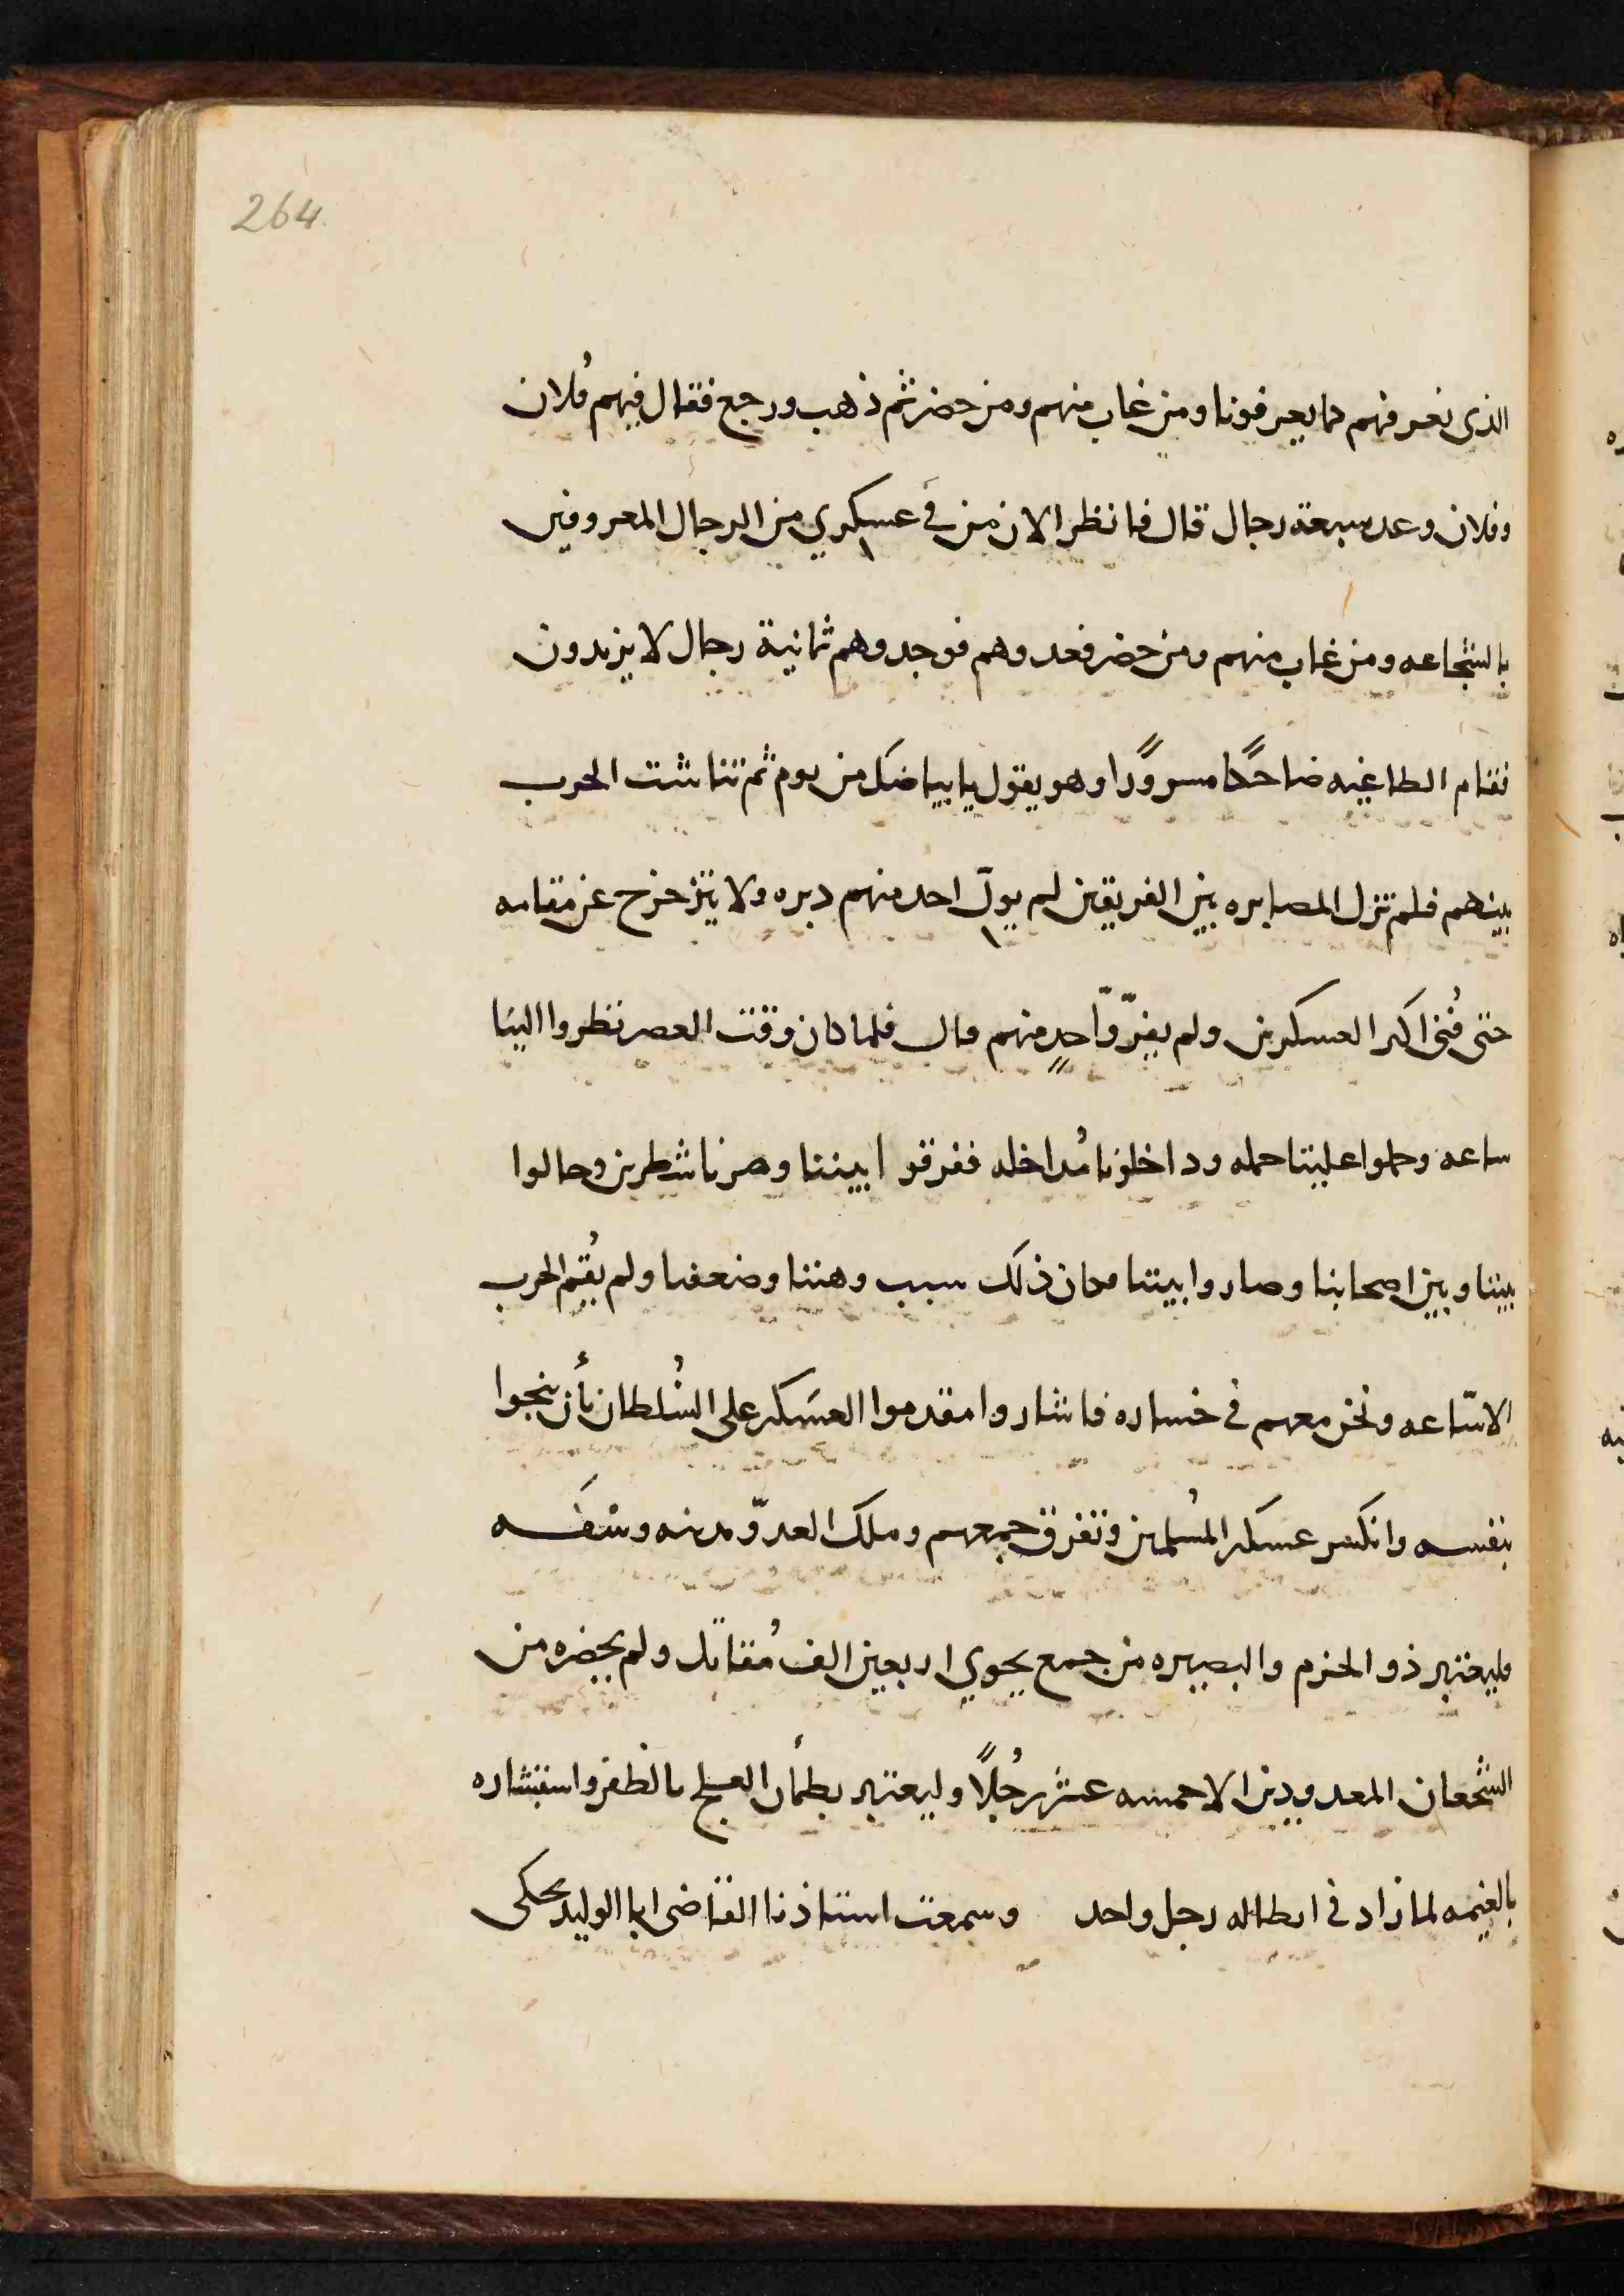 264
الذى نعرفهم كما يعرفونا ومن غاب منهم ومن حضر ثم ذهب ورجع فقال فيهم فُلان
وفلان وعد سبعة رجال قال فانظر الان من في عسكري من الرجال المعروفين
بالشجاعه ومن غاب منهم ومن حضر فعدوهم فوجدوهم ثمانية رجال لا يزيدون
فقام الطاغيه ضاحكًا مسرورًا وهو يقول يا بياضك من يوم ثم تناشت الحرب
بينهم فلم تزل المصابره بين الفريقين لم يولّ احد منهم دبره ولا يتزحزح عن مقامه
حتى فُنى اكثر العسكرين ولم يفرّ وّاحدٍ منهم قال فلما كان وقت العصر نظروا الينا
ساعه وحملوا علينا حمله وداخلونا مُداخله ففرقوا بيننا وصرنا شطرين وحالوا
بيننا وبين اصحابنا وصاروا بيننا فكان ذلك سبب وهننا وضعفنا ولم يُقم الحرب
الا سّاعه ونحن معهم في خساره فاشاروا مقدموا العسَكر على السُلطان بأن ينجوا
بنفسه وانكسر عسكر المُسلمين وتفرق جمعهم وملك العدوّ مدينه وشقه
فليعتبر ذو الحزم والبصيره من جمع يحوي اربعين الف مُقاتل ولم يحضره من
الشجعان المعدودين الا خمسه عشر رجُلًا وليعتبر بطمأن العلج بالظفر واستبشاره
بالغنيمه لما زاد في ابطاله رجل واحد وسمعت استاذنا القاضى ابا الوليد يحكى